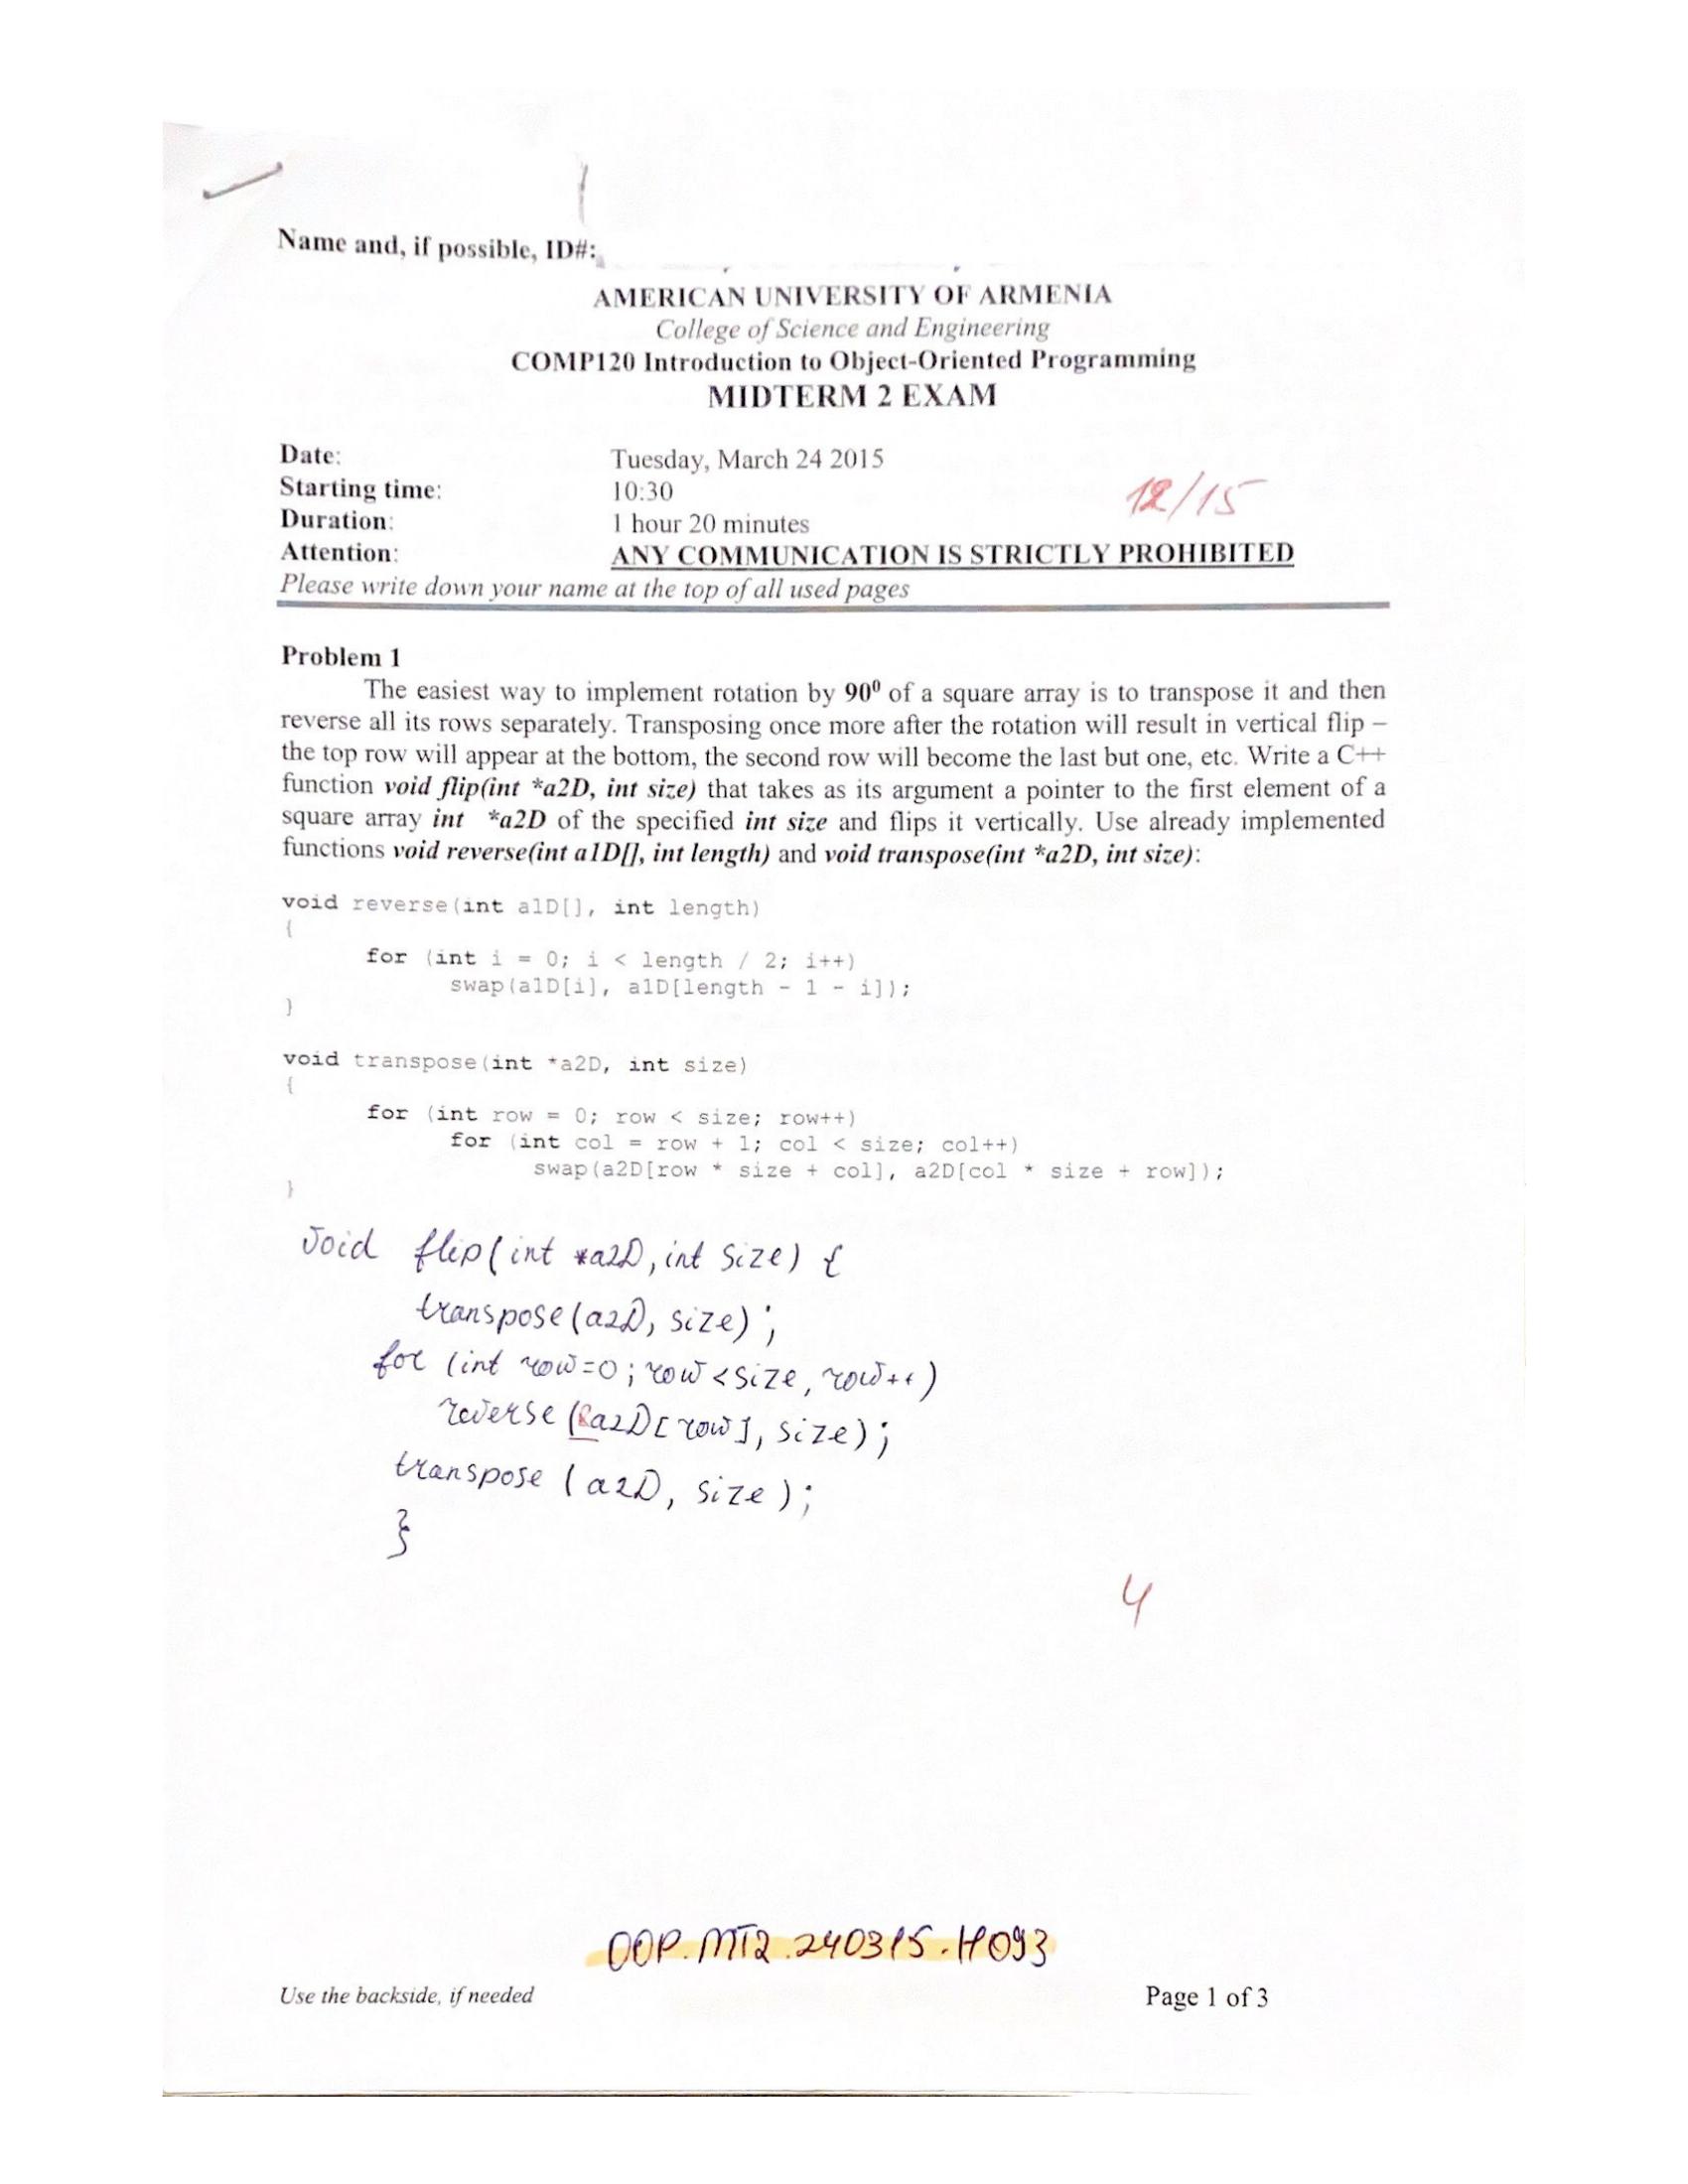 Name and, if possible, ID#:
AMERICAN UNIVERSITY OF ARMENIA
College of Science and Engineering
COMP120 Introduction to Object-Oriented Programming
MIDTERM 2 EXAM
Date: Tuesday, March 24 2015
Starting time: 10:30
12/15
Duration: 1 hour 20 minutes
Attention: ANY COMMUNICATION IS STRICTLY PROHIBITED
Please write down your name at the top of all used pages
Problem 1
The easiest way to implement rotation by 90⁰ of a square array is to transpose it and then
reverse all its rows separately. Transposing once more after the rotation will result in vertical flip –
the top row will appear at the bottom, the second row will become the last but one, etc. Write a C++
function void flip(int *a2D, int size) that takes as its argument a pointer to the first element of a
square array int *a2D of the specified int size and flips it vertically. Use already implemented
functions void reverse(int a1D[], int length) and void transpose(int *a2D, int size):
void reverse(int a1D[], int length)
{
for (int i = 0; i < length / 2; i++)
swap(a1D[i], a1D[length - 1 - i]);
}
void transpose(int *a2D, int size)
{
for (int row = 0; row < size; row++)
for (int col = row + 1; col < size; col++)
swap(a2D[row * size + col], a2D[col * size + row]);
}
void flip(int *a2D, int size) {
transpose(a2D, size);
for (int row=0; row<size, row++)
reverse(&a2D[row], size);
transpose (a2D, size);
}
4
OOP.MT2.240315.H093
Use the backside, if needed
Page 1 of 3